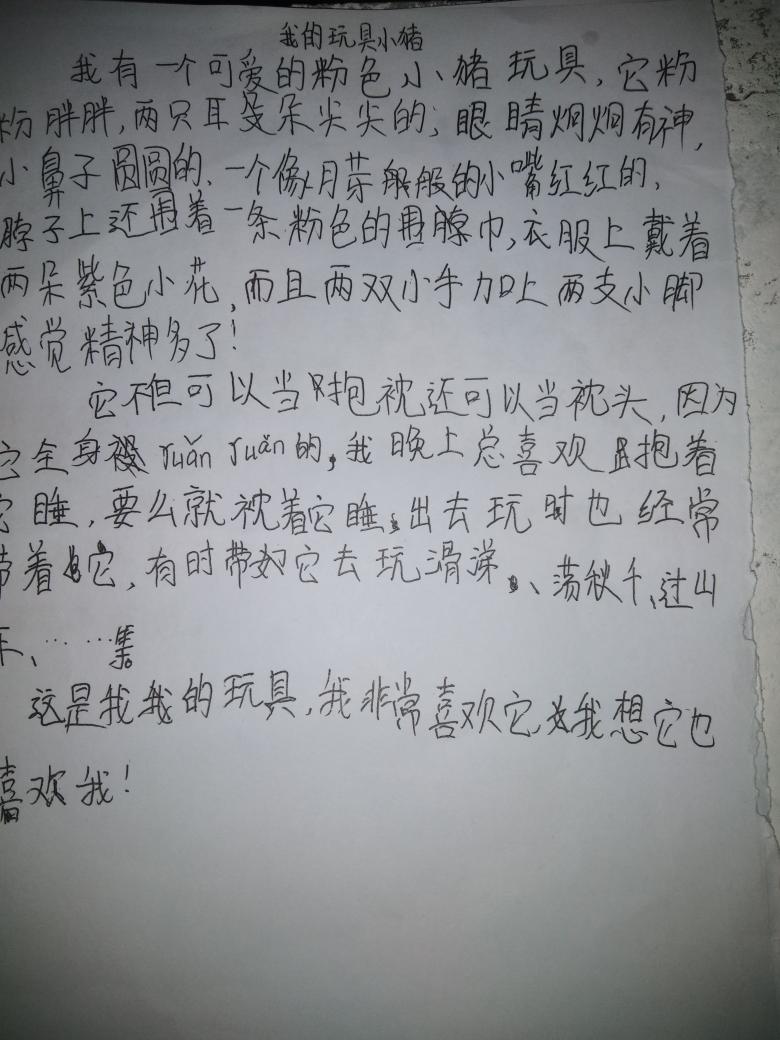 我的玩具小猪
我有一个可爱的粉色小猪玩具,它粉
粉胖胖,两只耳朵尖尖的;眼睛炯炯有神,
小鼻子圆圆的、一个像月芽般般的小嘴红红的,
脖子上还围着一条粉色的围脖巾,衣服上戴着
两朵紫色小花,而且两双小手加上两支小脚
感觉精神多了!
它不但可以当抱枕还可以当枕头,因为
它全身 ruǎn ruǎn的,我晚上总喜欢抱着
它睡,要么就枕着它睡,出去玩时也经常
带着它,有时带如它去玩滑涕、荡秋千、过山
车、……
这是我我的玩具,我非常喜欢它,我想它也
喜欢我!